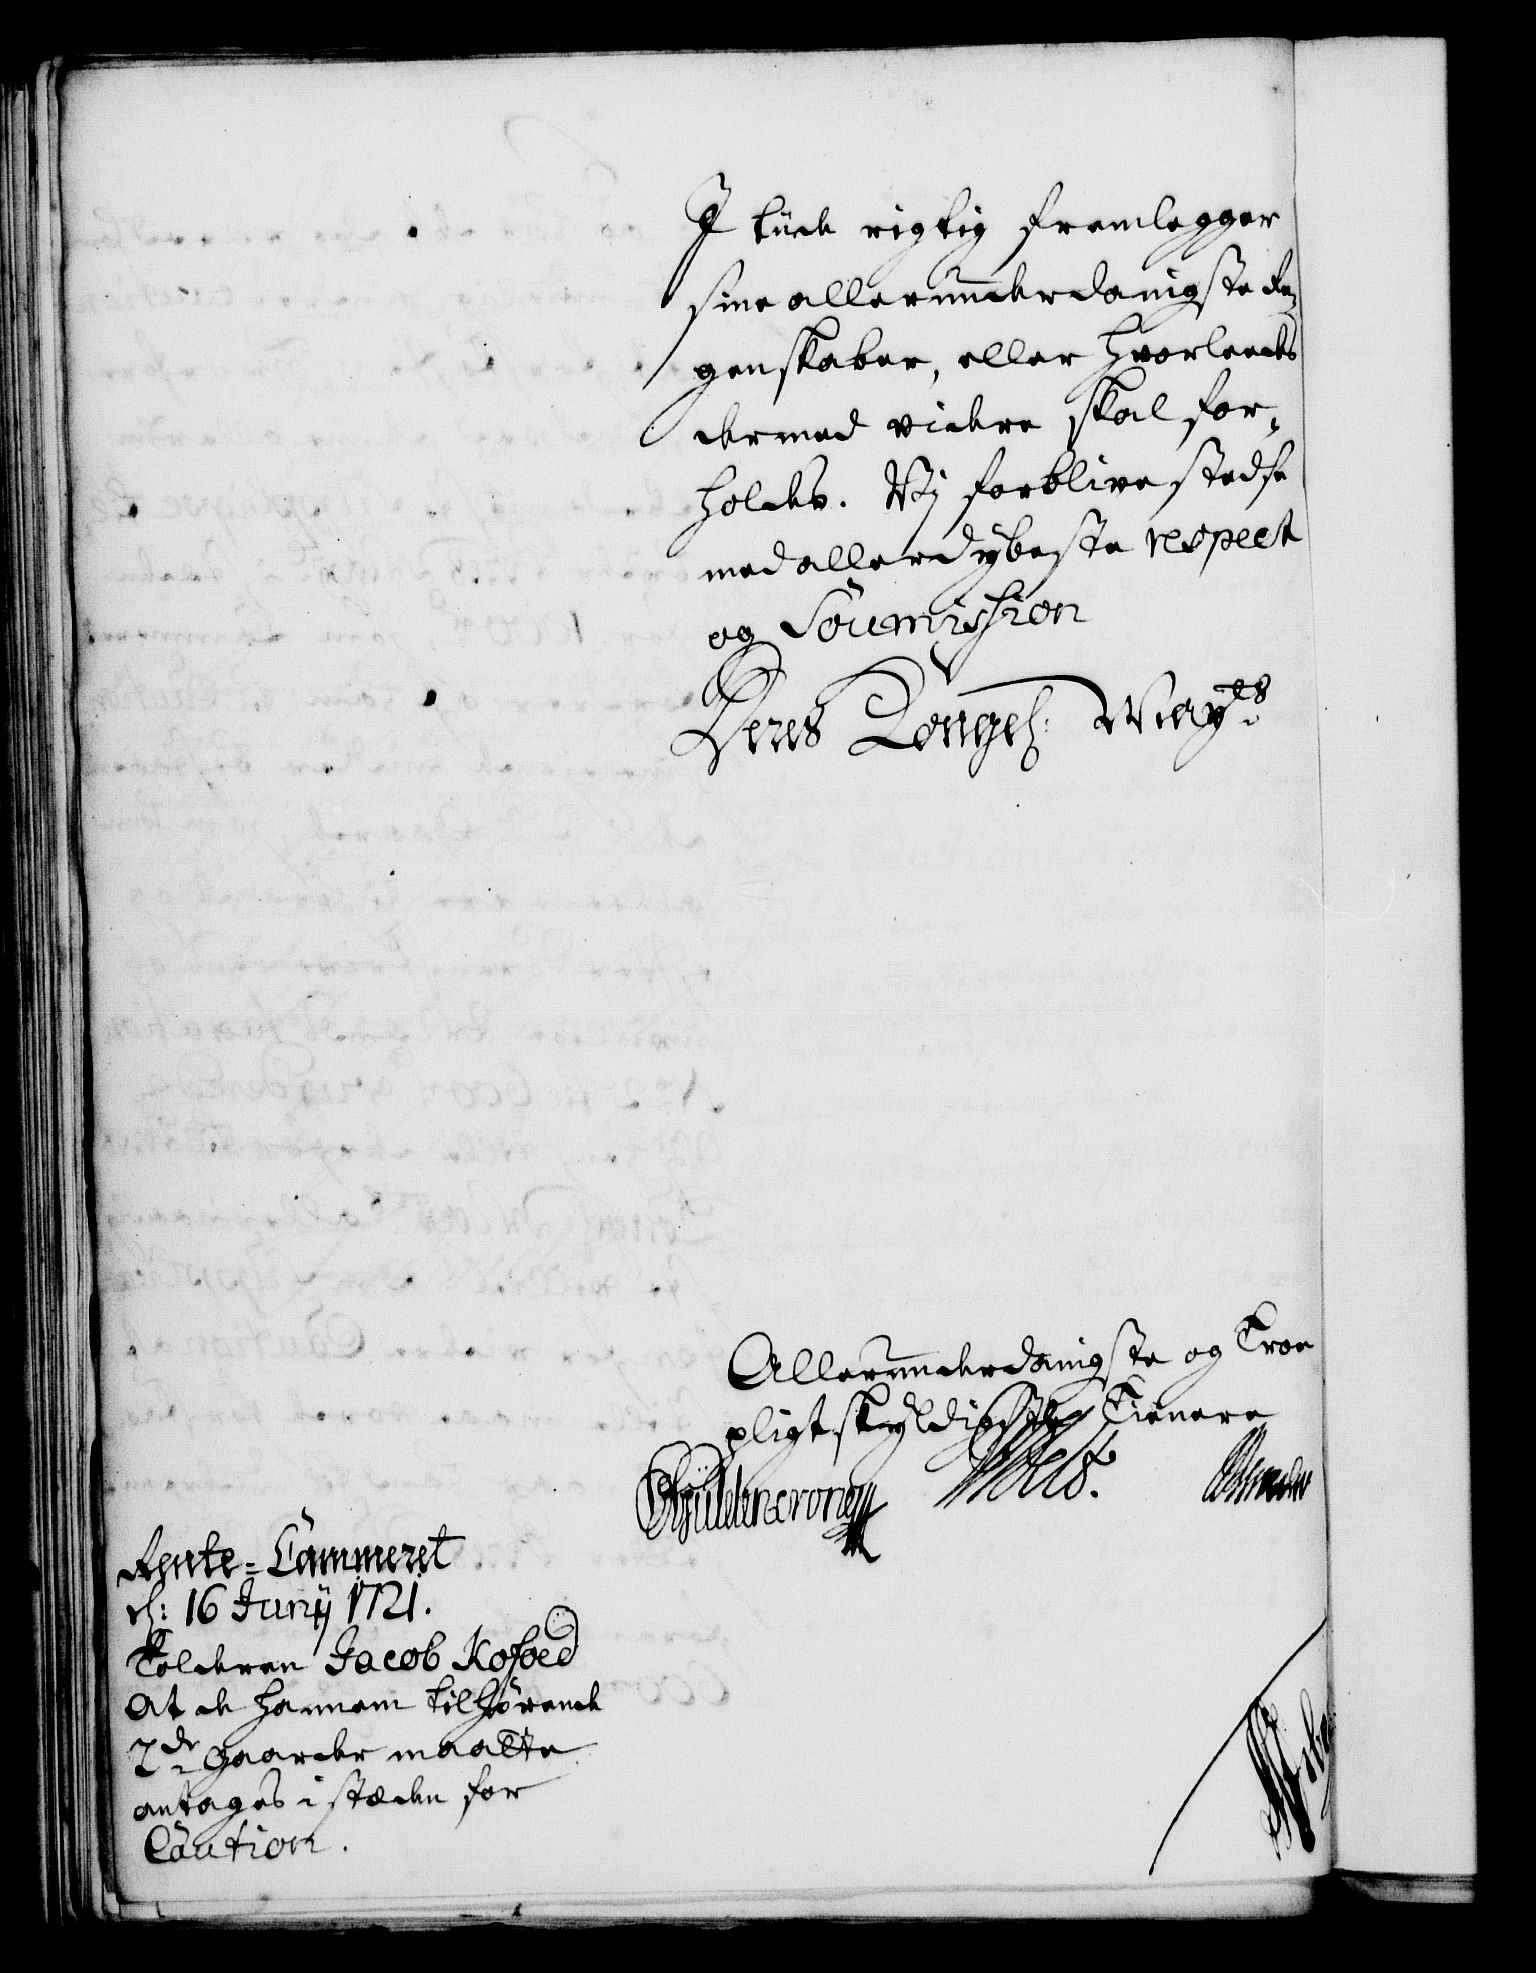 I tüde rigtig fremlegger
sine allerunderdanigste Re¬
genskaber, eller hvorledes
dermed videre skal for¬
holdes. Vij forblive stedse
med allerdybeste respect
og Soumission
Deres Kongel: Mayts
Allerunderdanigste og Troe
pligtskyldigste Tienere
CGüldencrone
Rente-Cammeret
d: 16 Junij 1721.
Tolderen Jacob Kofoed
At de hannem tilhørende
2de gaarder maatte
antages i stæden for
Caution.